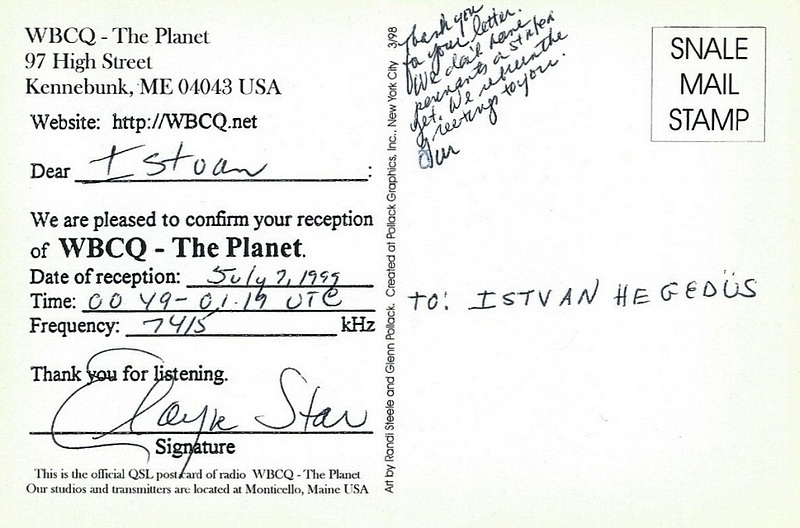 WBCQ - The Planet
97 High Street
Kennebunk, ME 04043 USA
Website: http://WBCQ.net
Dear Istvan :
We are pleased to confirm your reception
of WBCQ - The Planet.
Date of reception: July 7, 1999
Time: 00 49 - 01:19 UTC
Frequency: 7415 kHz
Thank you for listening.
Signature
This is the official QSL postcard of radio WBCQ - The Planet
Our studios and transmitters are located at Monticello, Maine USA
Art by Randi Steele and Glenn Pollack. Created at Pollack Graphics, Inc., New York City 3/98
Thank you
for your letter.
We don't have
pennants or sticker
yet. We return the
greetings to you.
SNALE
MAIL
STAMP
TO: ISTVAN HEGEDÜS